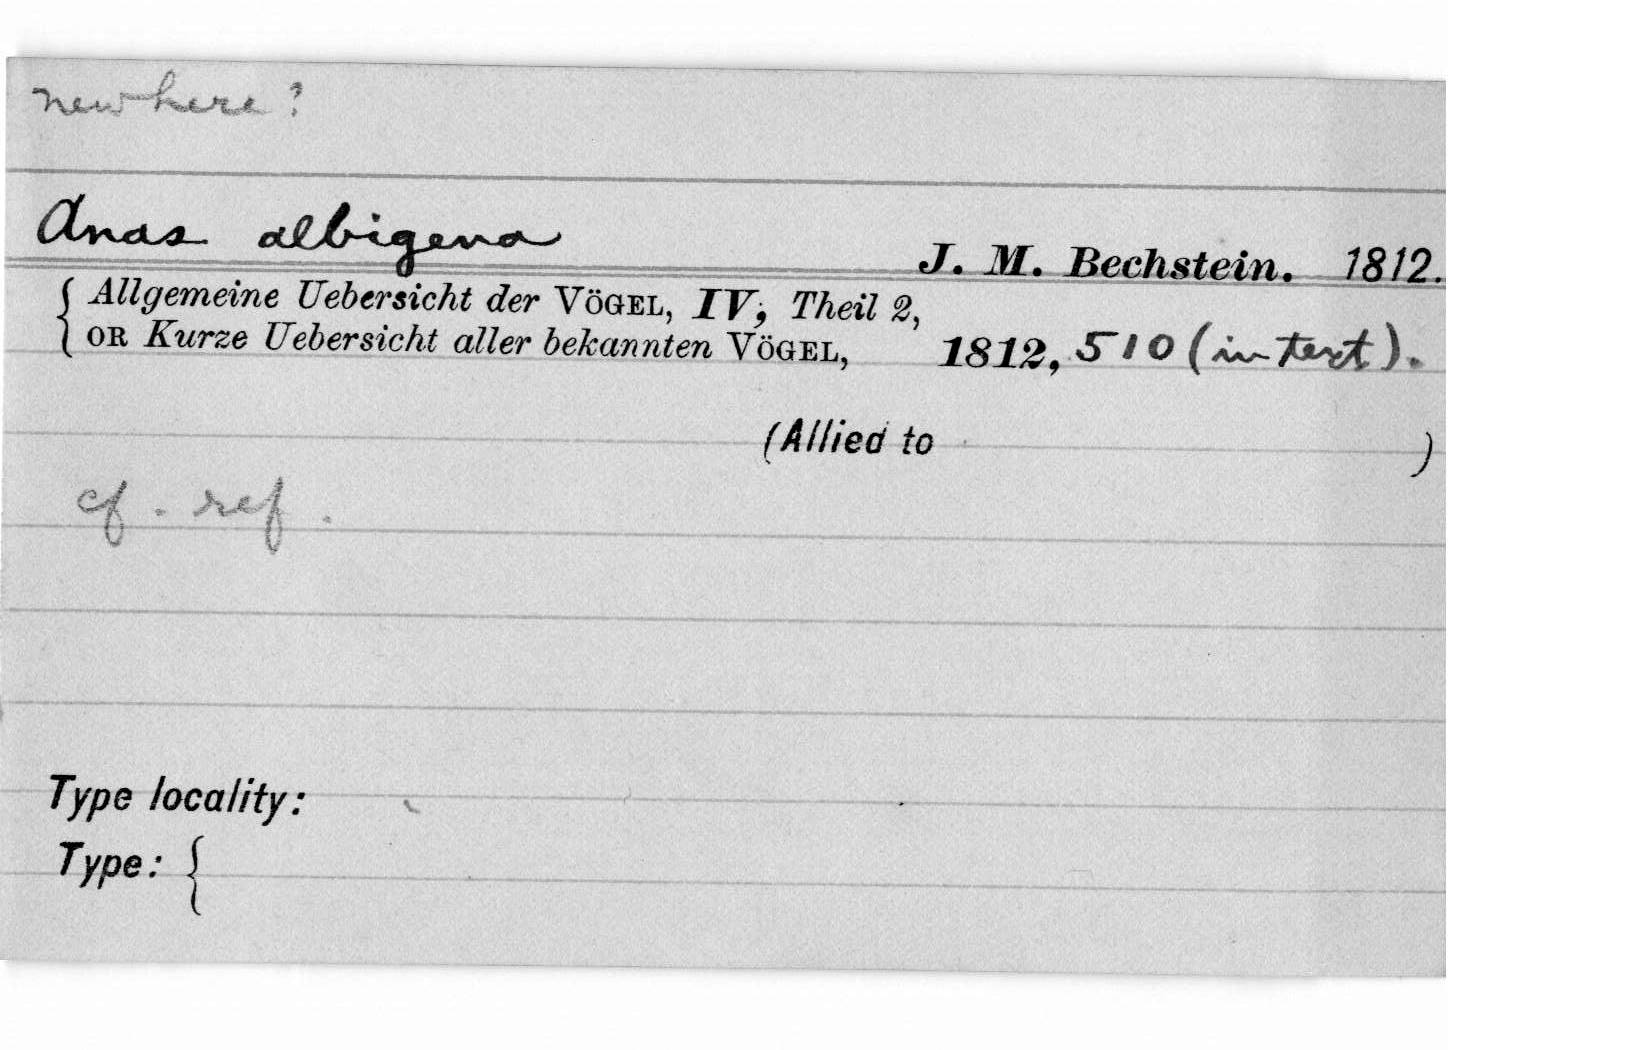 new here?
Anas albigena
J. M. Bechstein. 1812.
{ Allgemeine Uebersicht der VÖGEL, IV; Theil 2,
OR Kurze Uebersicht aller bekannten VÖGEL, 1812, 510 (in text).
(Allied to )
cf. ref.
Type locality:
Type: {